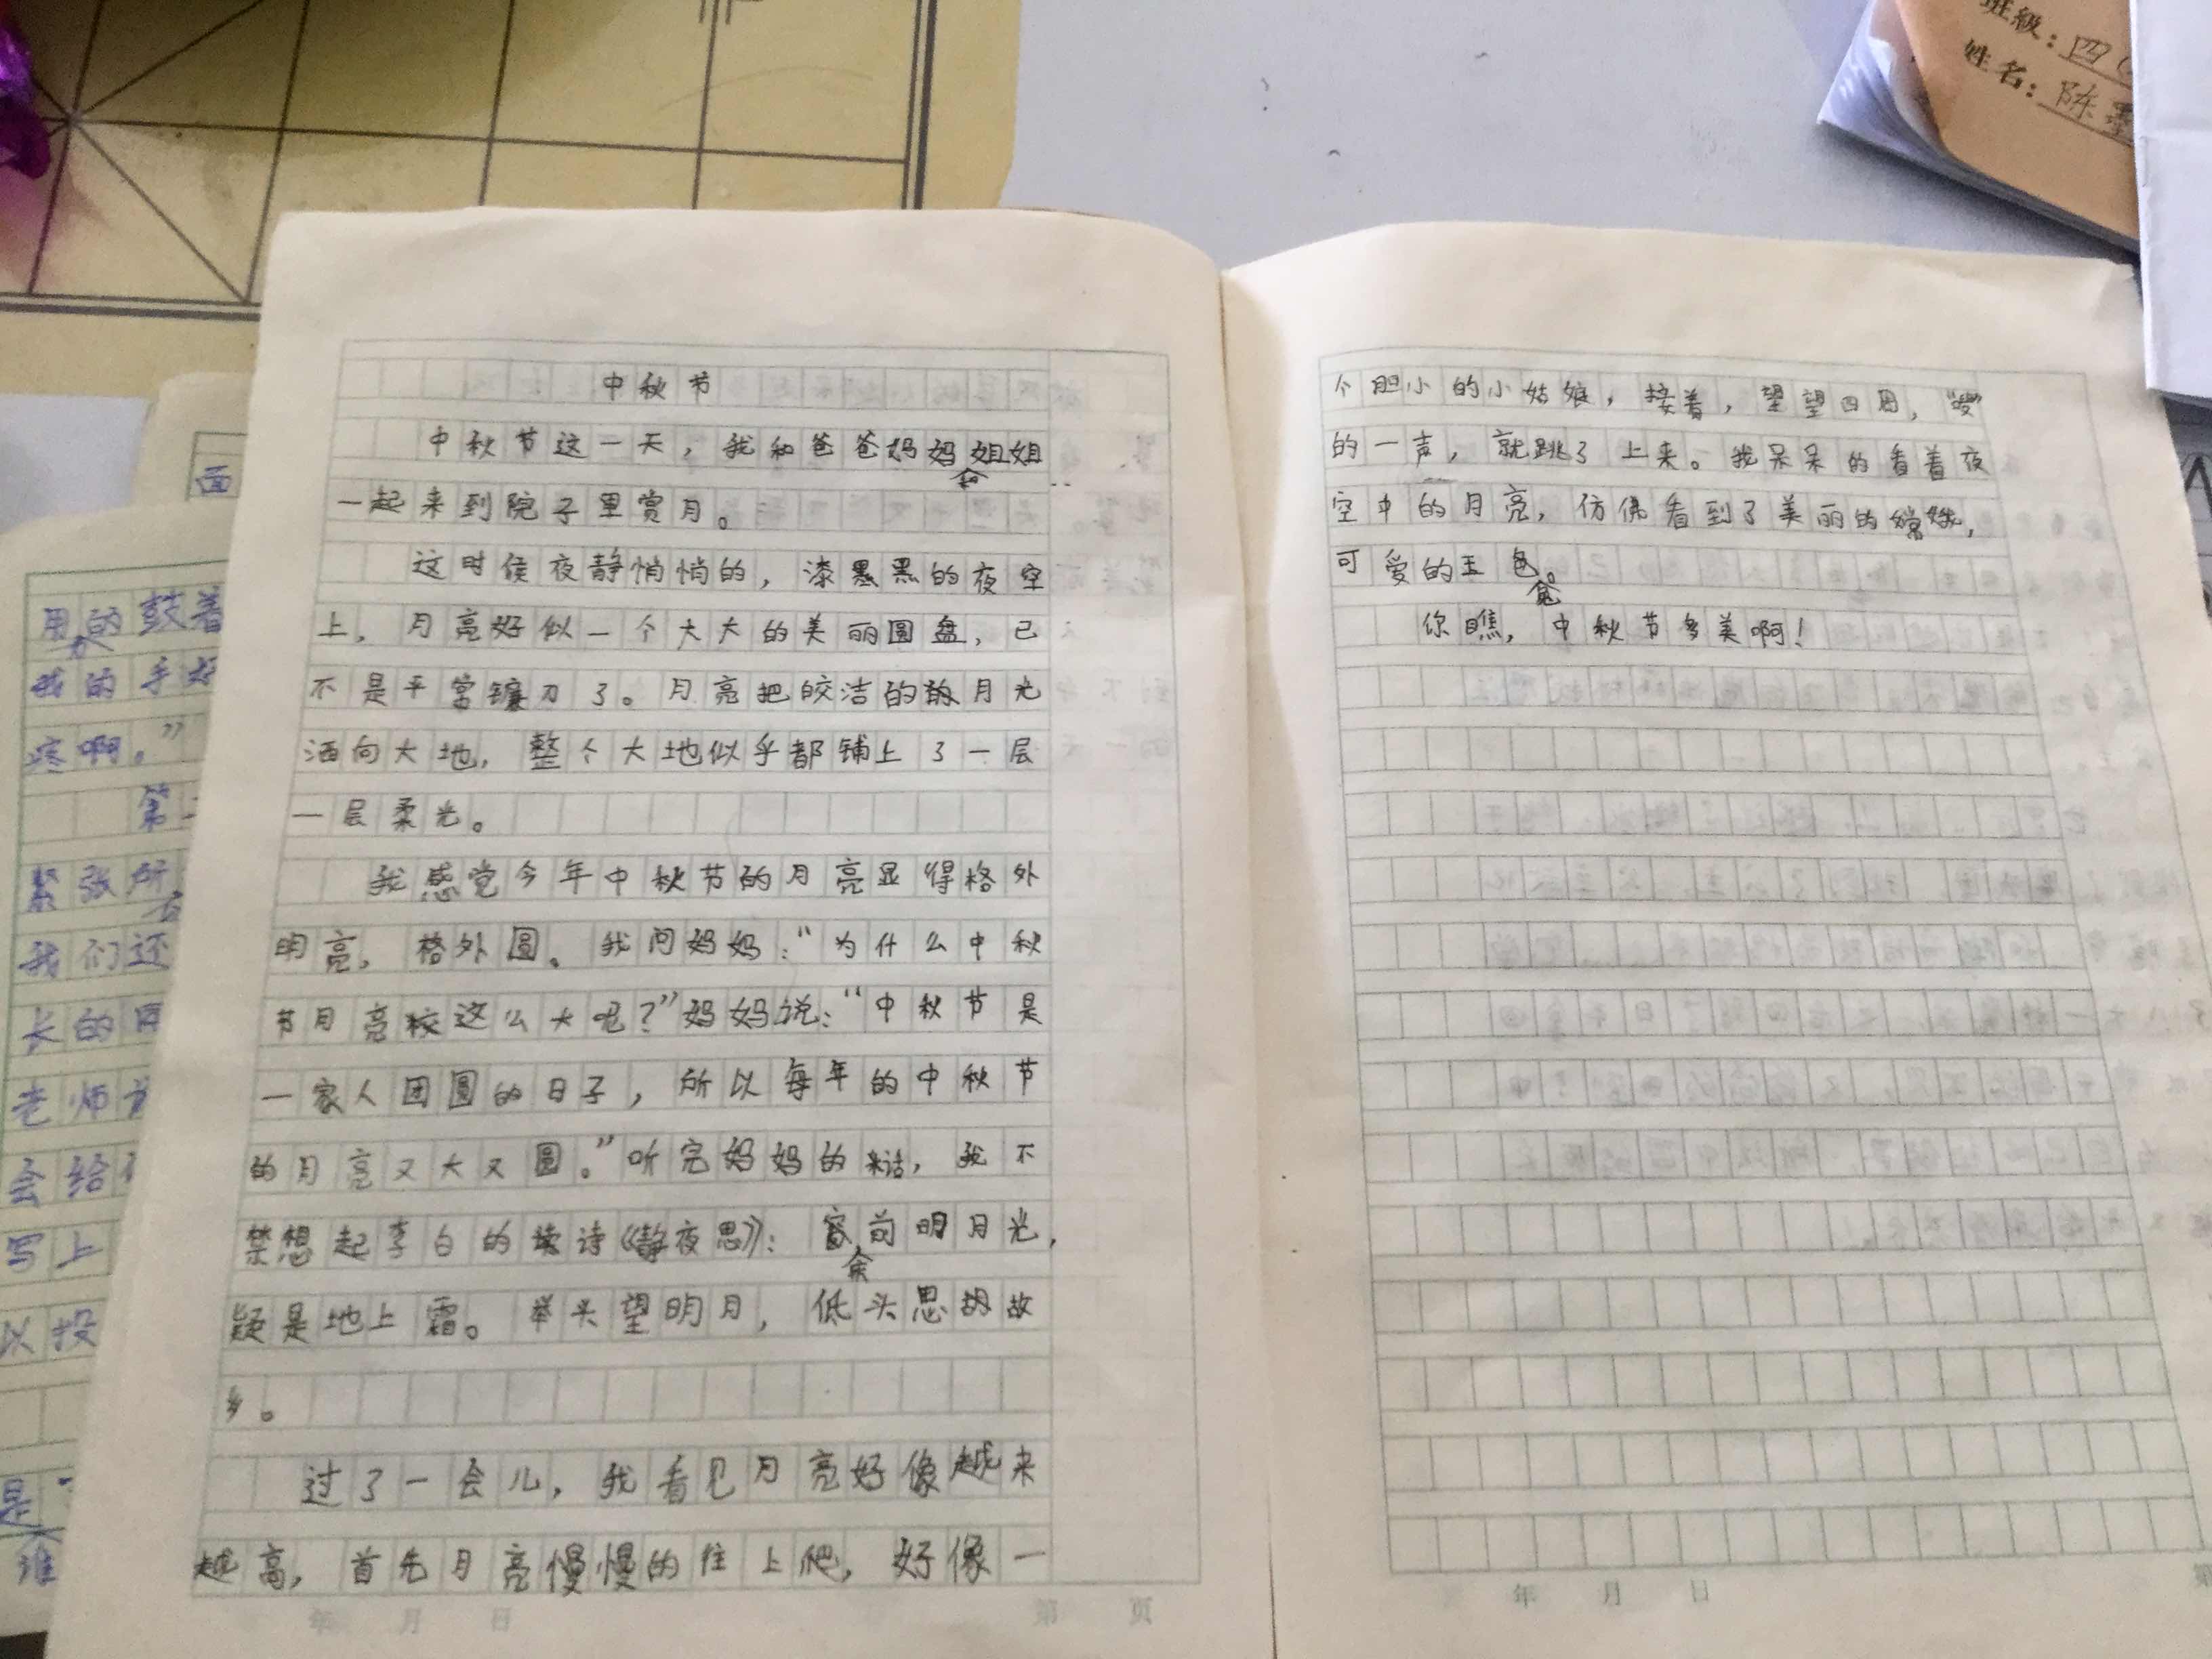 班級：四
姓名：陈
中秋节
中秋节这一天，我和爸爸妈妈和姐姐
一起来到院子里赏月。
这时侯夜静悄悄的，漆黑黑的夜空
上，月亮好似一个大大的美丽圆盘，已
不是平常镰刀了。月亮把皎洁的的月光
洒向大地，整个大地似乎都铺上了一层
一层柔光。
我感觉今年中秋节的月亮显得格外
明亮，格外圆。我问妈妈：“为什么中秋
节月亮较这么大呢？”妈妈说：“中秋节是
一家人团圆的日子，所以每年的中秋节
的月亮又大又圆。”听完妈妈的话，我不
禁想起李白的诗《静夜思》：窗前明月光，
疑是地上霜。举头望明月，低头思故
乡。
过了一会儿，我看见月亮好像越来
越高，首先月亮慢慢的往上爬，好像一
个胆小的小姑娘，接着，望望四周，“嗖”
的一声，就跳了上来。我呆呆的看着夜
空中的月亮，仿佛看到了美丽的嫦娥，
可爱的玉兔。
你瞧，中秋节多美啊！
年 月 日
第 页
年 月 日
第
面
用力的鼓着
我的手好
疼啊。”
第
紧张所
我们还
长的
老师
会给
写上
以投
是
谁